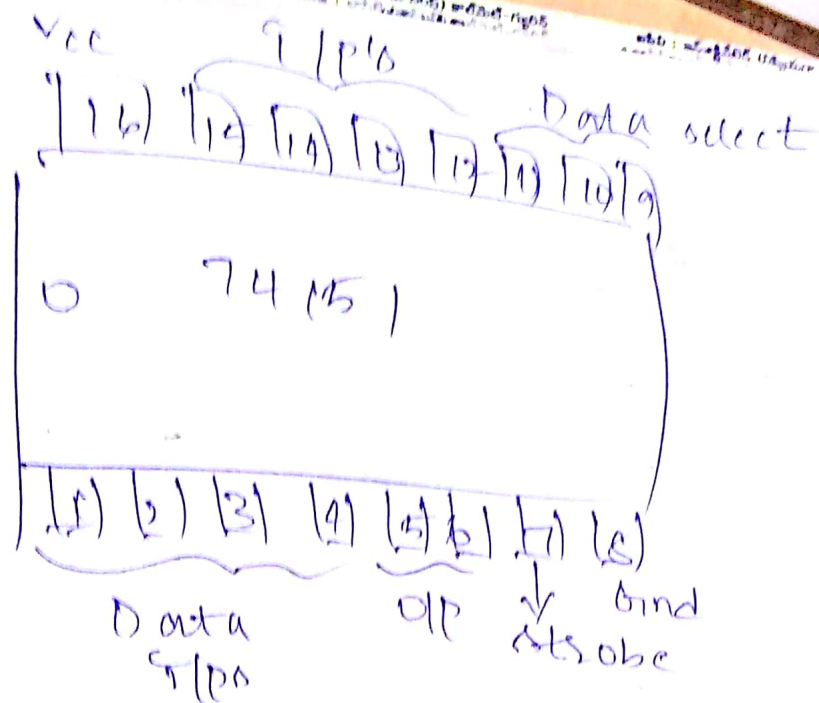 Vcc I/P's
Data select
16 15 14 13 12 11 10 9
74151
1 2 3 4 5 6 7 8
Data O/P Strobe Gnd
I/Ps